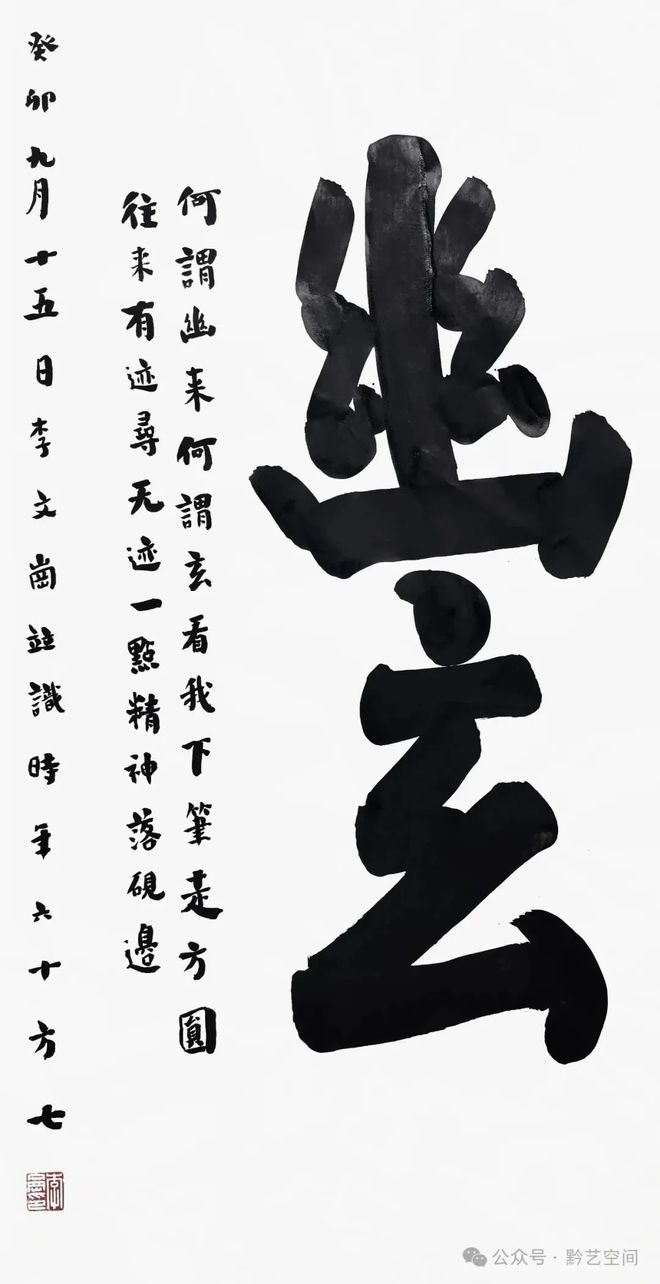 幽玄
何謂幽来何謂玄看我下筆走方圓
往来有迹尋无迹一點精神落硯邊
癸卯九月十五日李文崗並識時年六十方七
公众号·黔艺空间